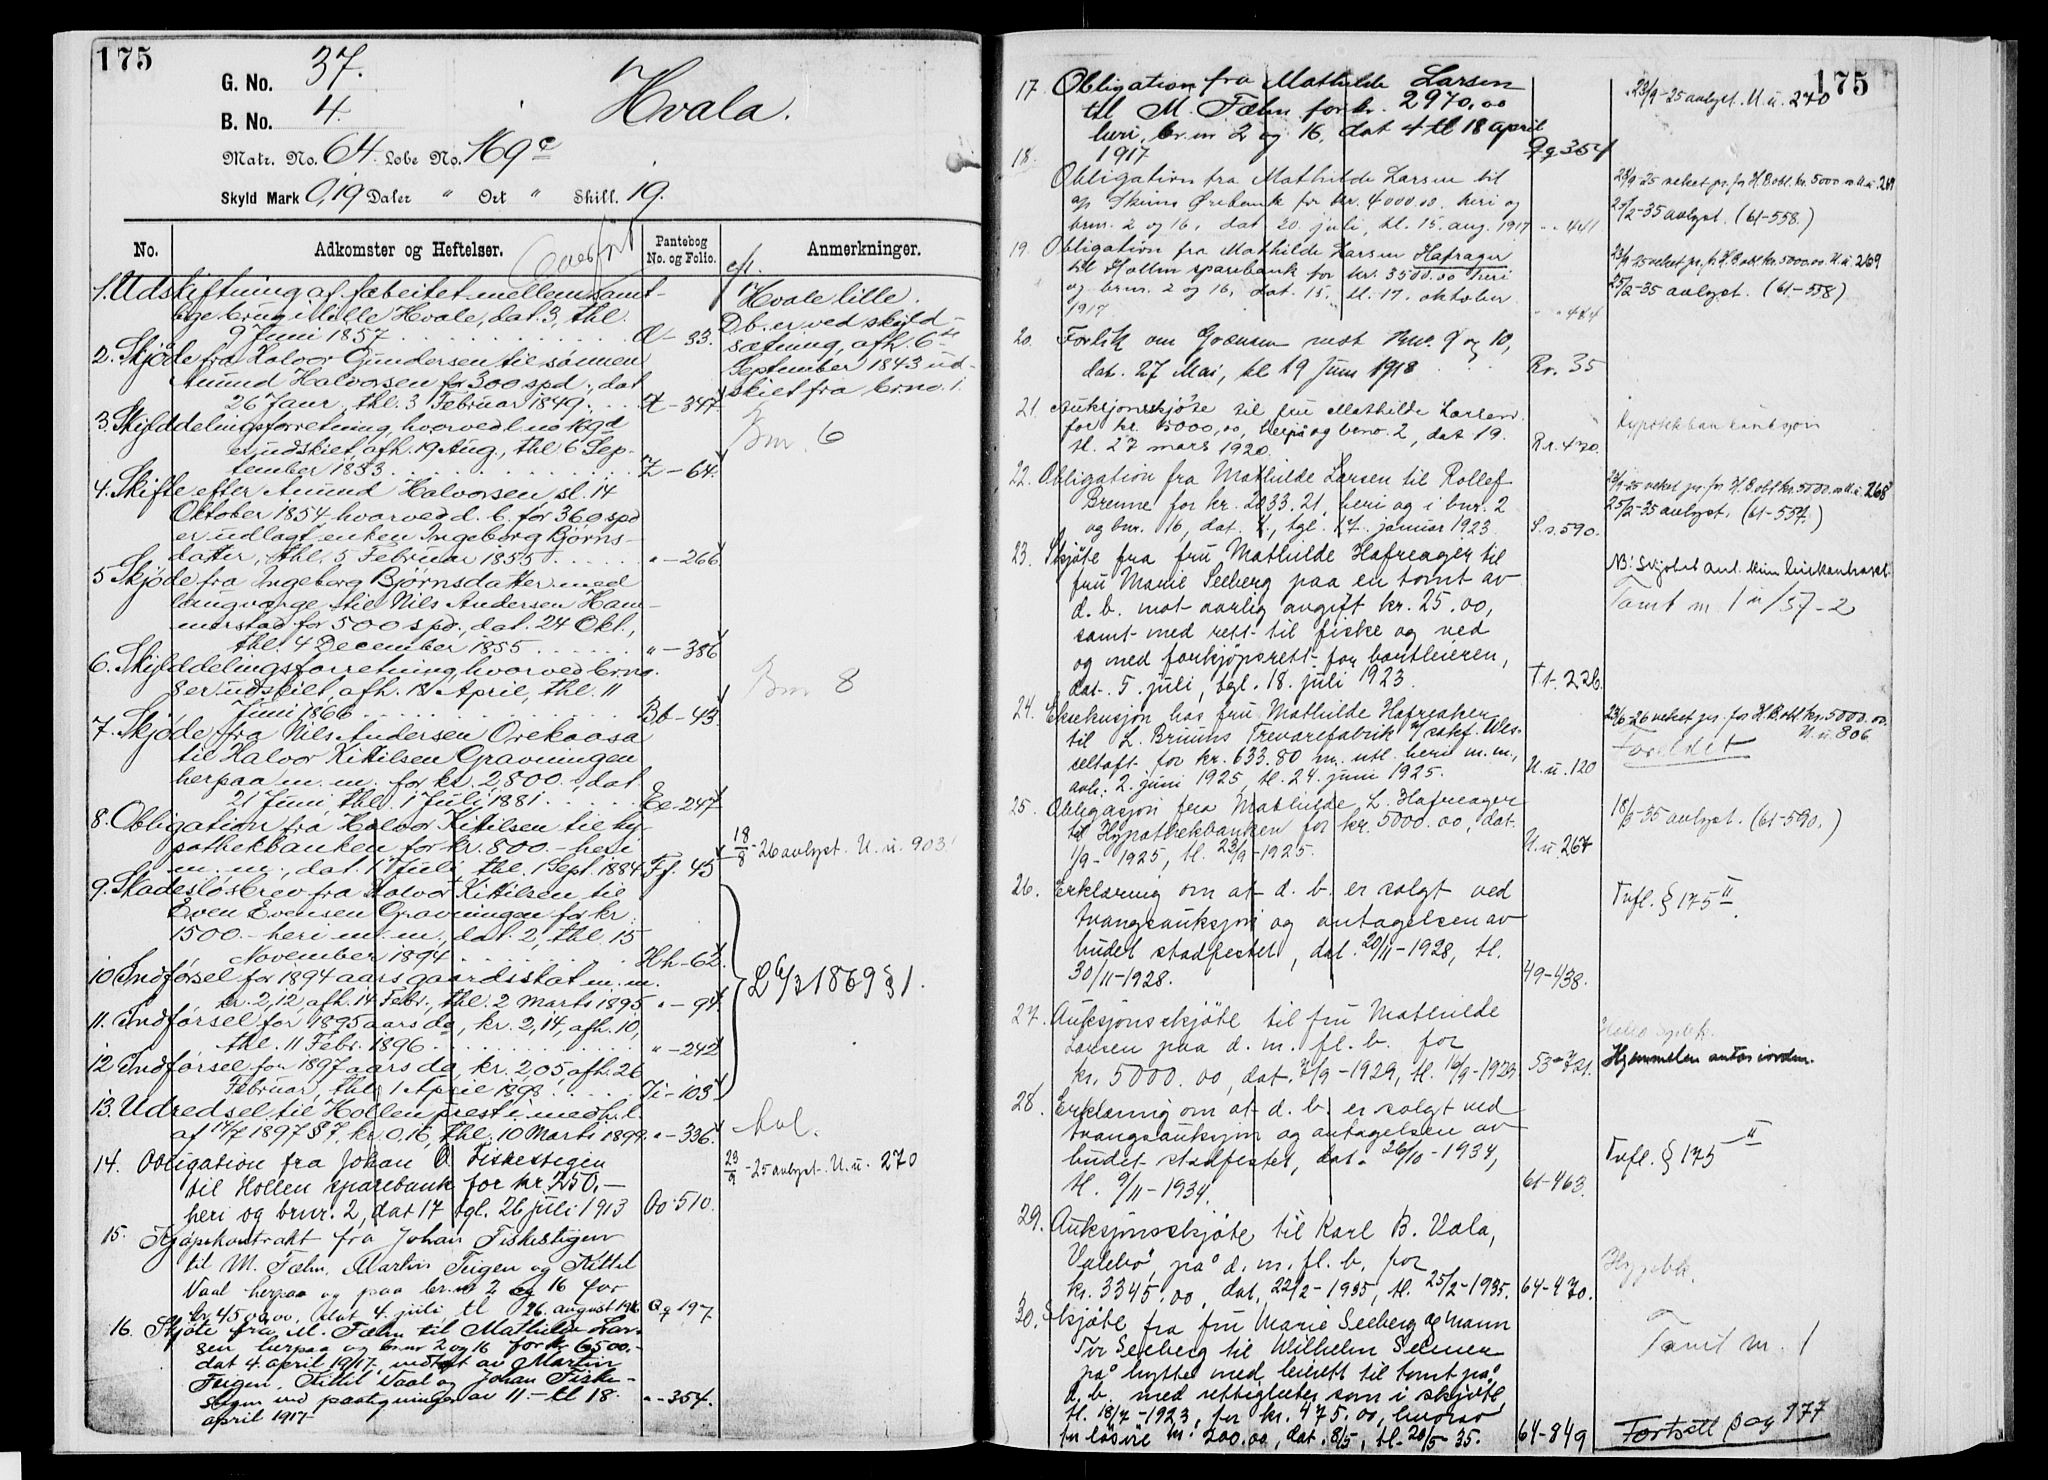 175
G. No. 37.
B. No. 4.
Hvala.
Matr. No. 64. Lobe No. 169c
Skyld Mark 0,19 Daler " Ort " Skill. 19.
No. Adkomster og Heftelser. Pantebog No. og Folio. Anmerkninger.
Overført
1. Udskiftning af fæbeitet mellem samt-
lige brug i Lille Hvale, dat. 3, thl.
9 Juni 1857 - 33.
2. Skjøde fra Halvor Gundersen til sønnen
Amund Halvorsen for 300 spd., dat.
26 Janr., thl. 3 Februar 1849 - 347
3. Skylddelingsforretning, hvorved l. no 169d
er udskiet, afh. 19 Aug., thl. 6 Sep-
tember 1853 Z - 64.
4. Skifte efter Amund Halvorsen sl. 14
Oktober 1854 hvorved d. b. for 360 spd
er udlagt enken Ingeborg Bjørns-
datter, thl. 5 Februar 1855 " - 266
5 Skjøde fra Ingeborg Bjørnsdatter med
laugværge til Nils Andersen Ham-
merstad for 500 spd., dat. 24 Okt.,
thl. 4 December 1855 " - 386
6. Skylddelingsforretning, hvorved brno.
8 er udskiet, afh. 18 April, thl. 11
Juni 1866 Bb - 43
7. Skjøde fra Nils Andersen Orekaasa
til Halvor Kittilsen Gravningen
herpaa m. m. for kr. 2,800.-, dat.
21 Juni, thl. 1 Juli 1881 Ee - 247
8. Obligation fra Halvor Kittilsen til hy-
pothekbanken for kr. 800.- heri
m. m., dat. 1 Juli, thl. 1 Sept. 1884 Ff. 45
9. Skadesløsbrev fra Halvor Kittilsen til
Even Evensen Gravningen for kr.
1500.- heri m. m., dat. 2, thl. 15
November 1894 Hh - 62
10 Indførsel for 1894 aars gaardsskat m. m.
kr. 2,12, afh. 14 Febr., thl. 2 Marts 1895 " - 94
11. Indførsel for 1895 aars do, kr. 2,14, afh. 10,
thl. 11 Febr. 1896 " - 242
12 Indførsel for 1897 aars do, kr. 2.05 afh. 26
Februar, thl. 1 April 1898 Ii - 103
13. Udredsel til Hollen prest i medh. l.
af 17/7 1897 § 7, kr. 0,16, thl. 10 Marts 1899 " - 336
14. Obligation fra Johan O. Fiskestigen
til Hollen sparebank for kr. 250,-
heri og brnr. 2, dat 17 tgl. 26 juli 1913 Oo 510.
15. Kjøpekontrakt fra Johan Fiskestigen
til M. Fæhn, Martin Teigen og Kittil
Vaal herpaa og paa br. nr 2 og 16 for
kr. 4500,00, dat 4. juli tl 26. august 1916 Qq 197
16. Skjøte fra M. Fæhn til Mathilde Lar-
sen herpaa og br.nr 2 og 16 for kr 6500.-
dat 4. april 1917, vedtatt av Martin
Teigen, Kittil Vaal og Johan Fiske-
stigen ved paategninger av 11.- tl 18.
april 1917 " - 354.
cfr.
Hvale lille.
D. b. er ved skyld-
sætning, afh. 6te
September 1843 ud-
skiet fra brno. 1.
Bnr. 6
Bnr 8
18/8 - 26 avlyst. U. u. 903
L 6/3 1869 § 1.
bol.
23/9 - 25 avlyst. U. u. 270
175
17. Obligation fra Mathilde Larsen
til M. Fæhn for kr. 2970,00
heri, br.nr 2 og 16, dat 4 tl 18 april
1917 Qq 354
23/9-25 avlyst. U. u. 270
18. Obligation fra Mathilde Larsen til
Skiens Ørebank for kr. 4000.00. heri og
brnr. 2 og 16, dat 20. juli, tl. 15. aug. 1917 " - 441
23/9-25 veket pr. for H.B. obl. kr. 5000.00 U. u. 269
25/2-35 avlyst. (61-558.)
19. Obligation fra Mathilde Larsen Hafrager
til Hollen sparebank for kr. 3500.00 heri
og brnr. 2 og 16, dat. 15. tl. 17. oktober
1917 " " 474
23/9-25 veket pr. f. H.B. obl. kr. 5000.00. U. u. 269
25/2-35 avlyst. (61-558)
20. Forlik om Grænsen mot Bno. 9 og 10,
dat. 27 Mai, tl 19 Juni 1918 Rr. 35
21. Auksjonsskjøte til fru Mathilde Larsen
for kr. 5000,00, herpå og brno. 2, dat 19.
tl. 27 mars 1920. Rr. 470.
22. Obligation fra Mathilde Larsen til Rollef
Brenne for kr. 2233.21, heri og i bnr. 2
og bnr. 16, dat. 1., tgl. 17. januar 1923 S.s. 590.
23/9-25 veket pr. for H.B. obl. kr. 5000.00 U. u. 268
25/2-35 avlyst. (61-557.)
23. Skjøte fra fru Mathilde Hafreager til
fru Marie Seeberg paa en tomt av
d. b. mot aarlig avgift kr. 25.00,
samt med rett til fiske og ved
og med forkjøpsrett for bortleieren,
dat. 5. juli, tgl. 18. juli 1923. Tt. 226.
Tomt nr. 1
24. Eksekusjon hos fru Mathilde Hafreager
til L. Bruuns Trevarefabrik v/ sakf. Wes-
seltoft for kr. 633.80 m. utl. heri m. m.,
avh. 2. juni 1925, tl. 24. juni 1925. U. u. 120
23/6-26 veket pr. for H.B. obl. kr. 5000.00.
U. u. 806
Foreldet
25. Obligasjon fra Mathilde L. Hafreager
til Hypothekbanken for kr. 5000.00, dat.
1/9-1925, tl. 23/9-1925. U. u. 267
18/6-35 avlyst. (61-590.)
26. Erklæring om at d. b. er solgt ved
tvangsauksjon og antagelsen av
budet stadfestet, dat. 20/11-1928, tl.
30/11-1928. 49-438.
Tvfl. § 175 II.
27. Auksjonsskjøte til fru Mathilde
Larsen paa d. m. fl. b. for
kr. 5000.00, dat. 7/9-1929, tl. 16/9-1929 53-721.
28. Erklæring om at d. b. er solgt ved
tvangsauksjon og antagelsen av
budet stadfestet, dat. 26/10-1934,
tl. 9/11-1934. 61-463.
Tvfl. § 175 II
29. Auksjonsskjøte til Karl B. Vala,
Valebø, på d. m. fl. b. for
kr. 3345.00, dat. 22/2-1935, tl. 25/2-1935. 64-470.
Hypbk.
30. Skjøte fra fru Marie Seeberg og mann
Tor Seeberg til Wilhelm Selmer
på hytte med leierett til tomt på
d. b. med rettigheter som i skjøte,
tl. 18/7-1923, for kr. 475.00, hvorav
for løsøre kr. 200.00, dat. 8/5, tl. 20/5-35. 64-849
Tomt nr. 1
Fortsett pag 177